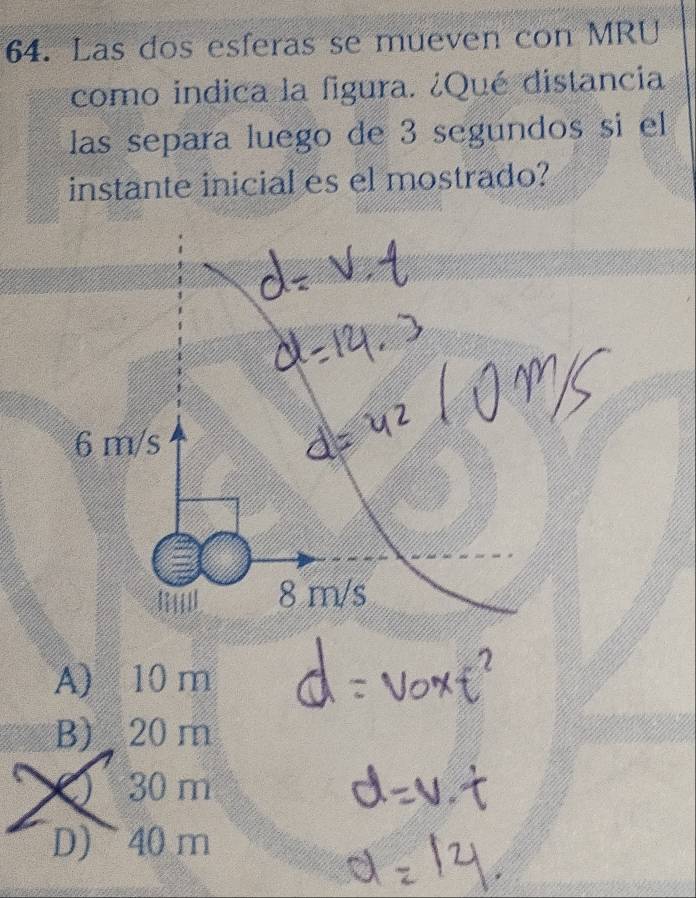 64. Las dos esferas se mueven con MRU
como indica la figura. ¿Qué distancia
las separa luego de 3 segundos si el
instante inicial es el mostrado?
d= v.t
d=14.3
d=42
10 m/s
6 m/s
8 m/s
A) 10 m
B) 20 m
) 30 m
D) 40 m
d = voxt²
d=v.t
d=14.